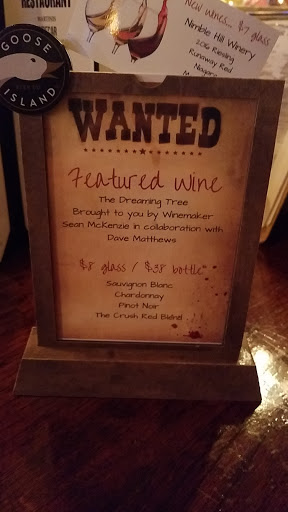 RESTAURANT
New wines... $7 glass
Nimble Hill Winery
2016 Riesling
Runaway Red
Niagara
GOOSE
ISLAND
WANTED
Featured Wine
The Dreaming Tree
Brought to you by Winemaker
Sean McKenzie in collaboration with
Dave Matthews
$8 glass / $38 bottle
Sauvignon Blanc
Chardonnay
Pinot Noir
The Crush Red Blend